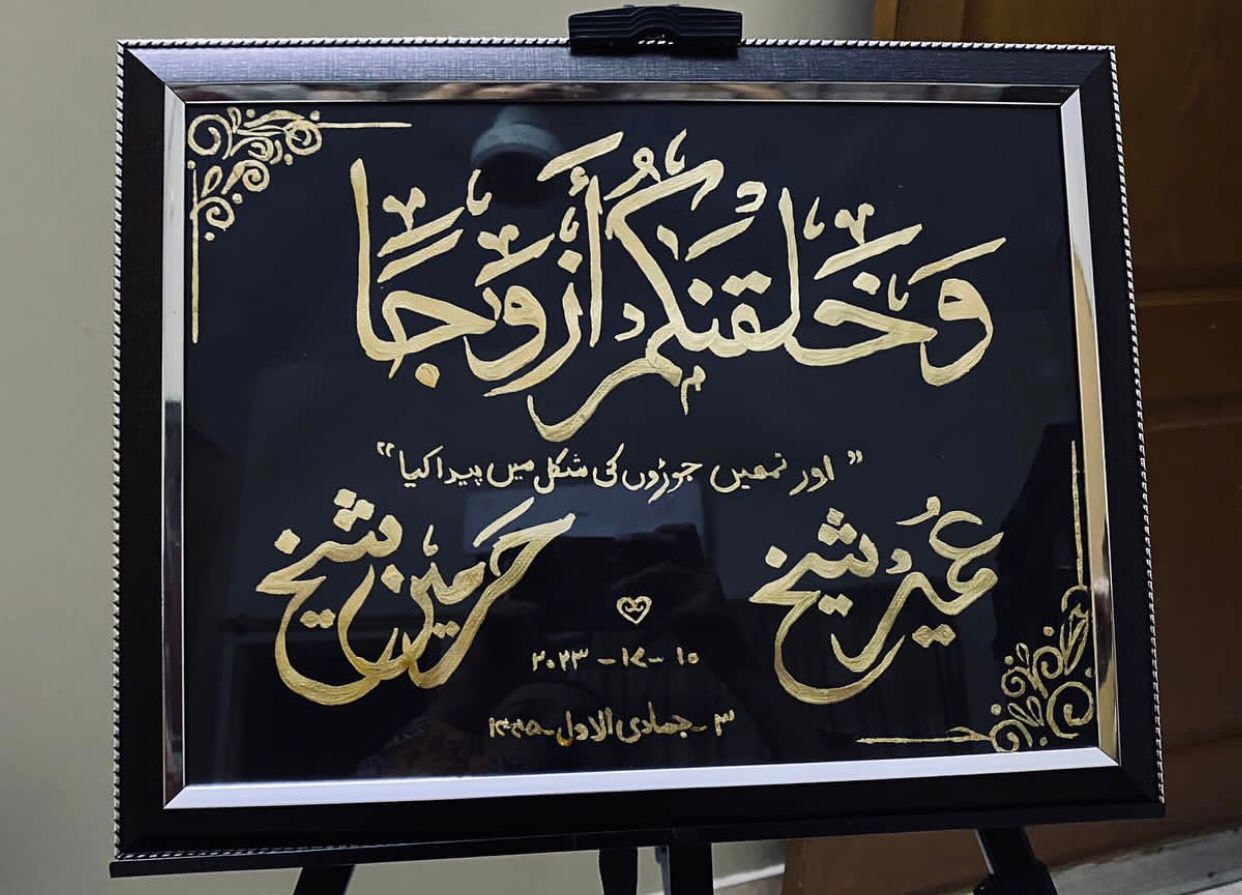 وَخَلَقْنَٰكُمْ أَزْوَٰجًا
"اور تمھیں جوڑوں کی شکل میں پیدا کیا"
عُمیر شیخ
حرمین شیخ
۱۰ - ۱۲ - ۲۰۲۳
۳ - جمادی الاول - ۱۴۴۵